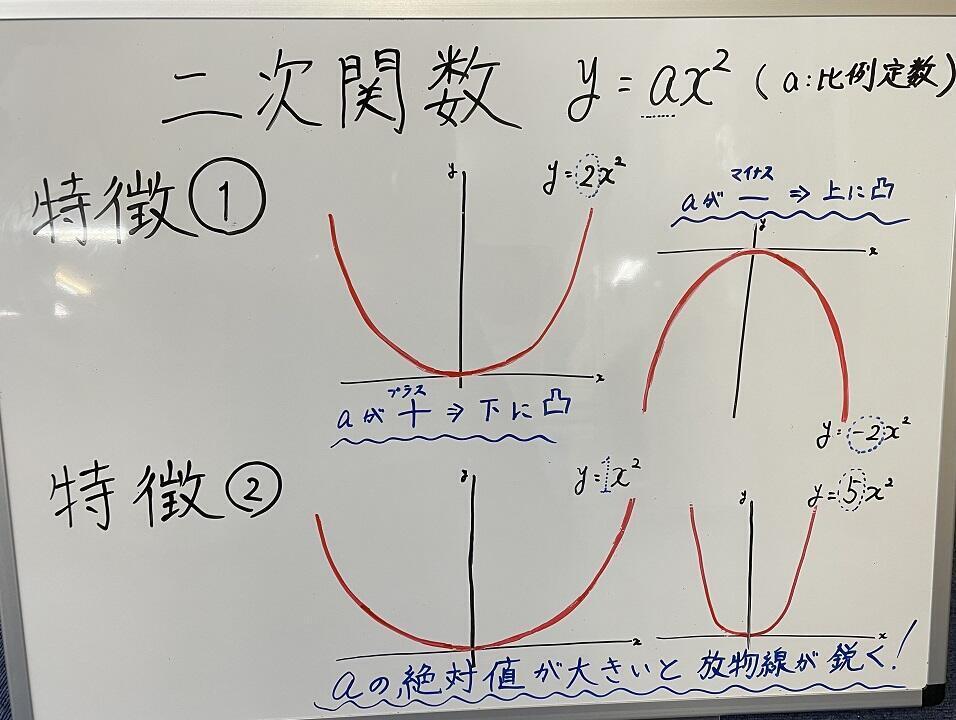 二次関数 y=ax² (a:比例定数)
特徴①
y
y=2x²
x
プラス
aが + ⇒ 下に凸
マイナス
aが ー ⇒ 上に凸
y
x
y=-2x²
特徴②
y
y=1x²
x
y
y=5x²
x
aの絶対値が大きいと放物線が鋭く!